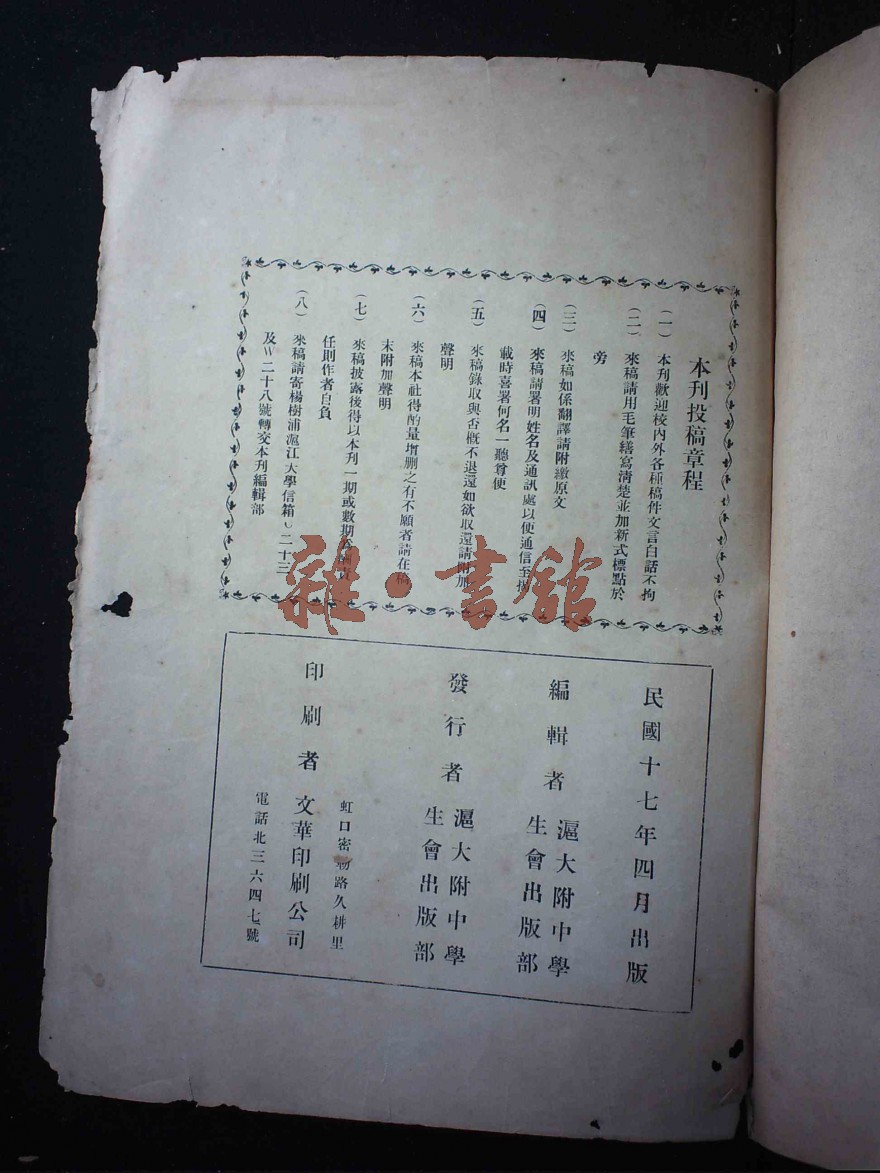 本刊投稿章程
(一) 本刊歡迎校內外各種稿件文言白話不拘
(二) 來稿請用毛筆繕寫清楚並加新式標點於
旁
(三) 來稿如係翻譯請附繳原文
(四) 來稿請署明姓名及通訊處以便通信至揭
載時喜署何名一聽尊便
(五) 來稿錄取與否概不退還如欲取還請附加
聲明
(六) 來稿本社得酌量增删之有不願者請在稿
末附加聲明
(七) 來稿披露後得以本刊一期或數期
任則作者自負
(八) 來稿請寄楊樹浦滬江大學信箱二十三
及二十八號轉交本刊編輯部
民國十七年四月出版
編輯者 滬大附中學
生會出版部
發行者 滬大附中學
生會出版部
印刷者 文華印刷公司
虹口密勒路久耕里
電話北三六四七號
雜·書館